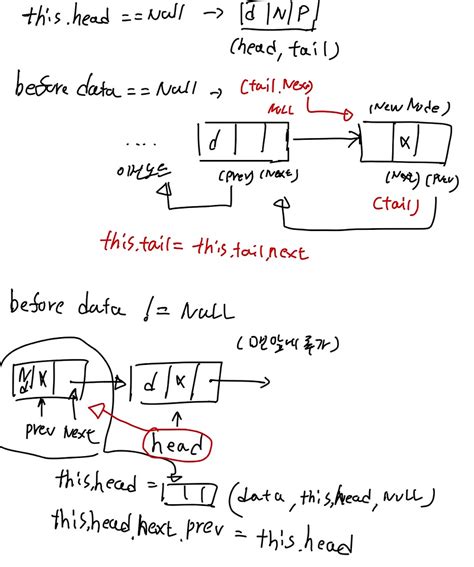 this.head == Null → [d | N | P]
(head, tail)
before data == Null → (tail.Next)
NULL
(New Node)
....
d
X
이전노드
(prev) (Next)
(Next) (prev)
(tail)
this.tail = this.tail.next
before data != NULL
(맨앞에 추가)
X
d X
prev Next
head
this.head = (data, this.head, NULL)
this.head.next.prev = this.head